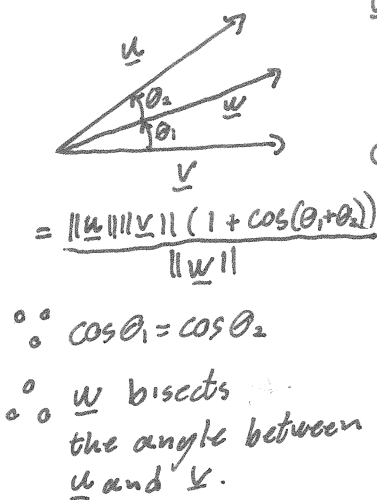 u
θ₂
w
θ₁
v
= ||u||||v|| (1 + cos(θ₁+θ₂))
||w||
∴ cosθ₁ = cosθ₂
∴ w bisects
the angle between
u and v.